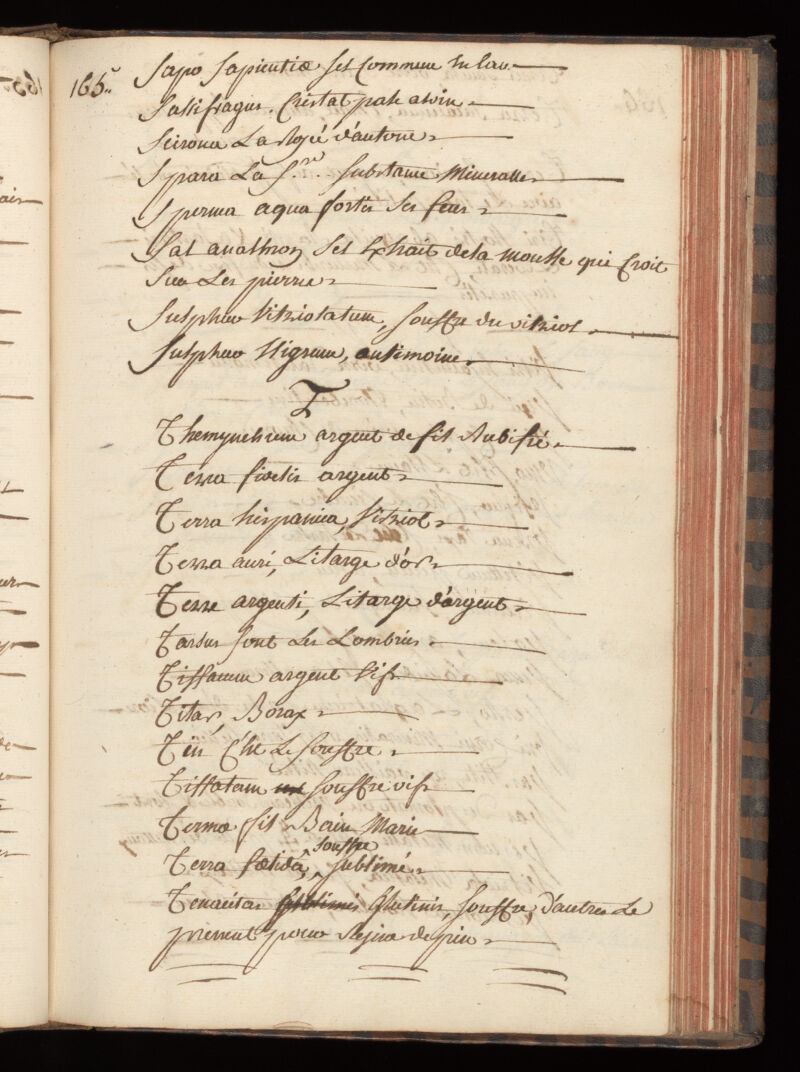 165.
Sapo Sapientiæ sel Commun
Saxifragus. Cristal pale
Scirona La Rosée d'autone.
Spara La Substance Mineralle
Sperma aqua fortis
Sal anathron Sel Extrait de la mousse qui Croit
Sur Les pierres
Sulphur Vitriolatum, souffre du vitriol.
Sulphur Nigrum, antimoine.
T
Themynehrum argent de fil Rubifié.
Terra fidelis argent.
Terra hispanica, Vitriol.
Terra auri, Litarge d'or.
Terre argenti, Litarge d'argent.
Tarsus sont Les Lombris.
Tissatum argent Vif
Titar, Borax
Tin C'Est Le Souffre.
Tissatum souffre vif
Termæ fit Bain Marie
Terra fœtida, souffre sublimé.
Tenacitas Glutinis, souffre, d'autres Le
prennent pour Rezine de pin.